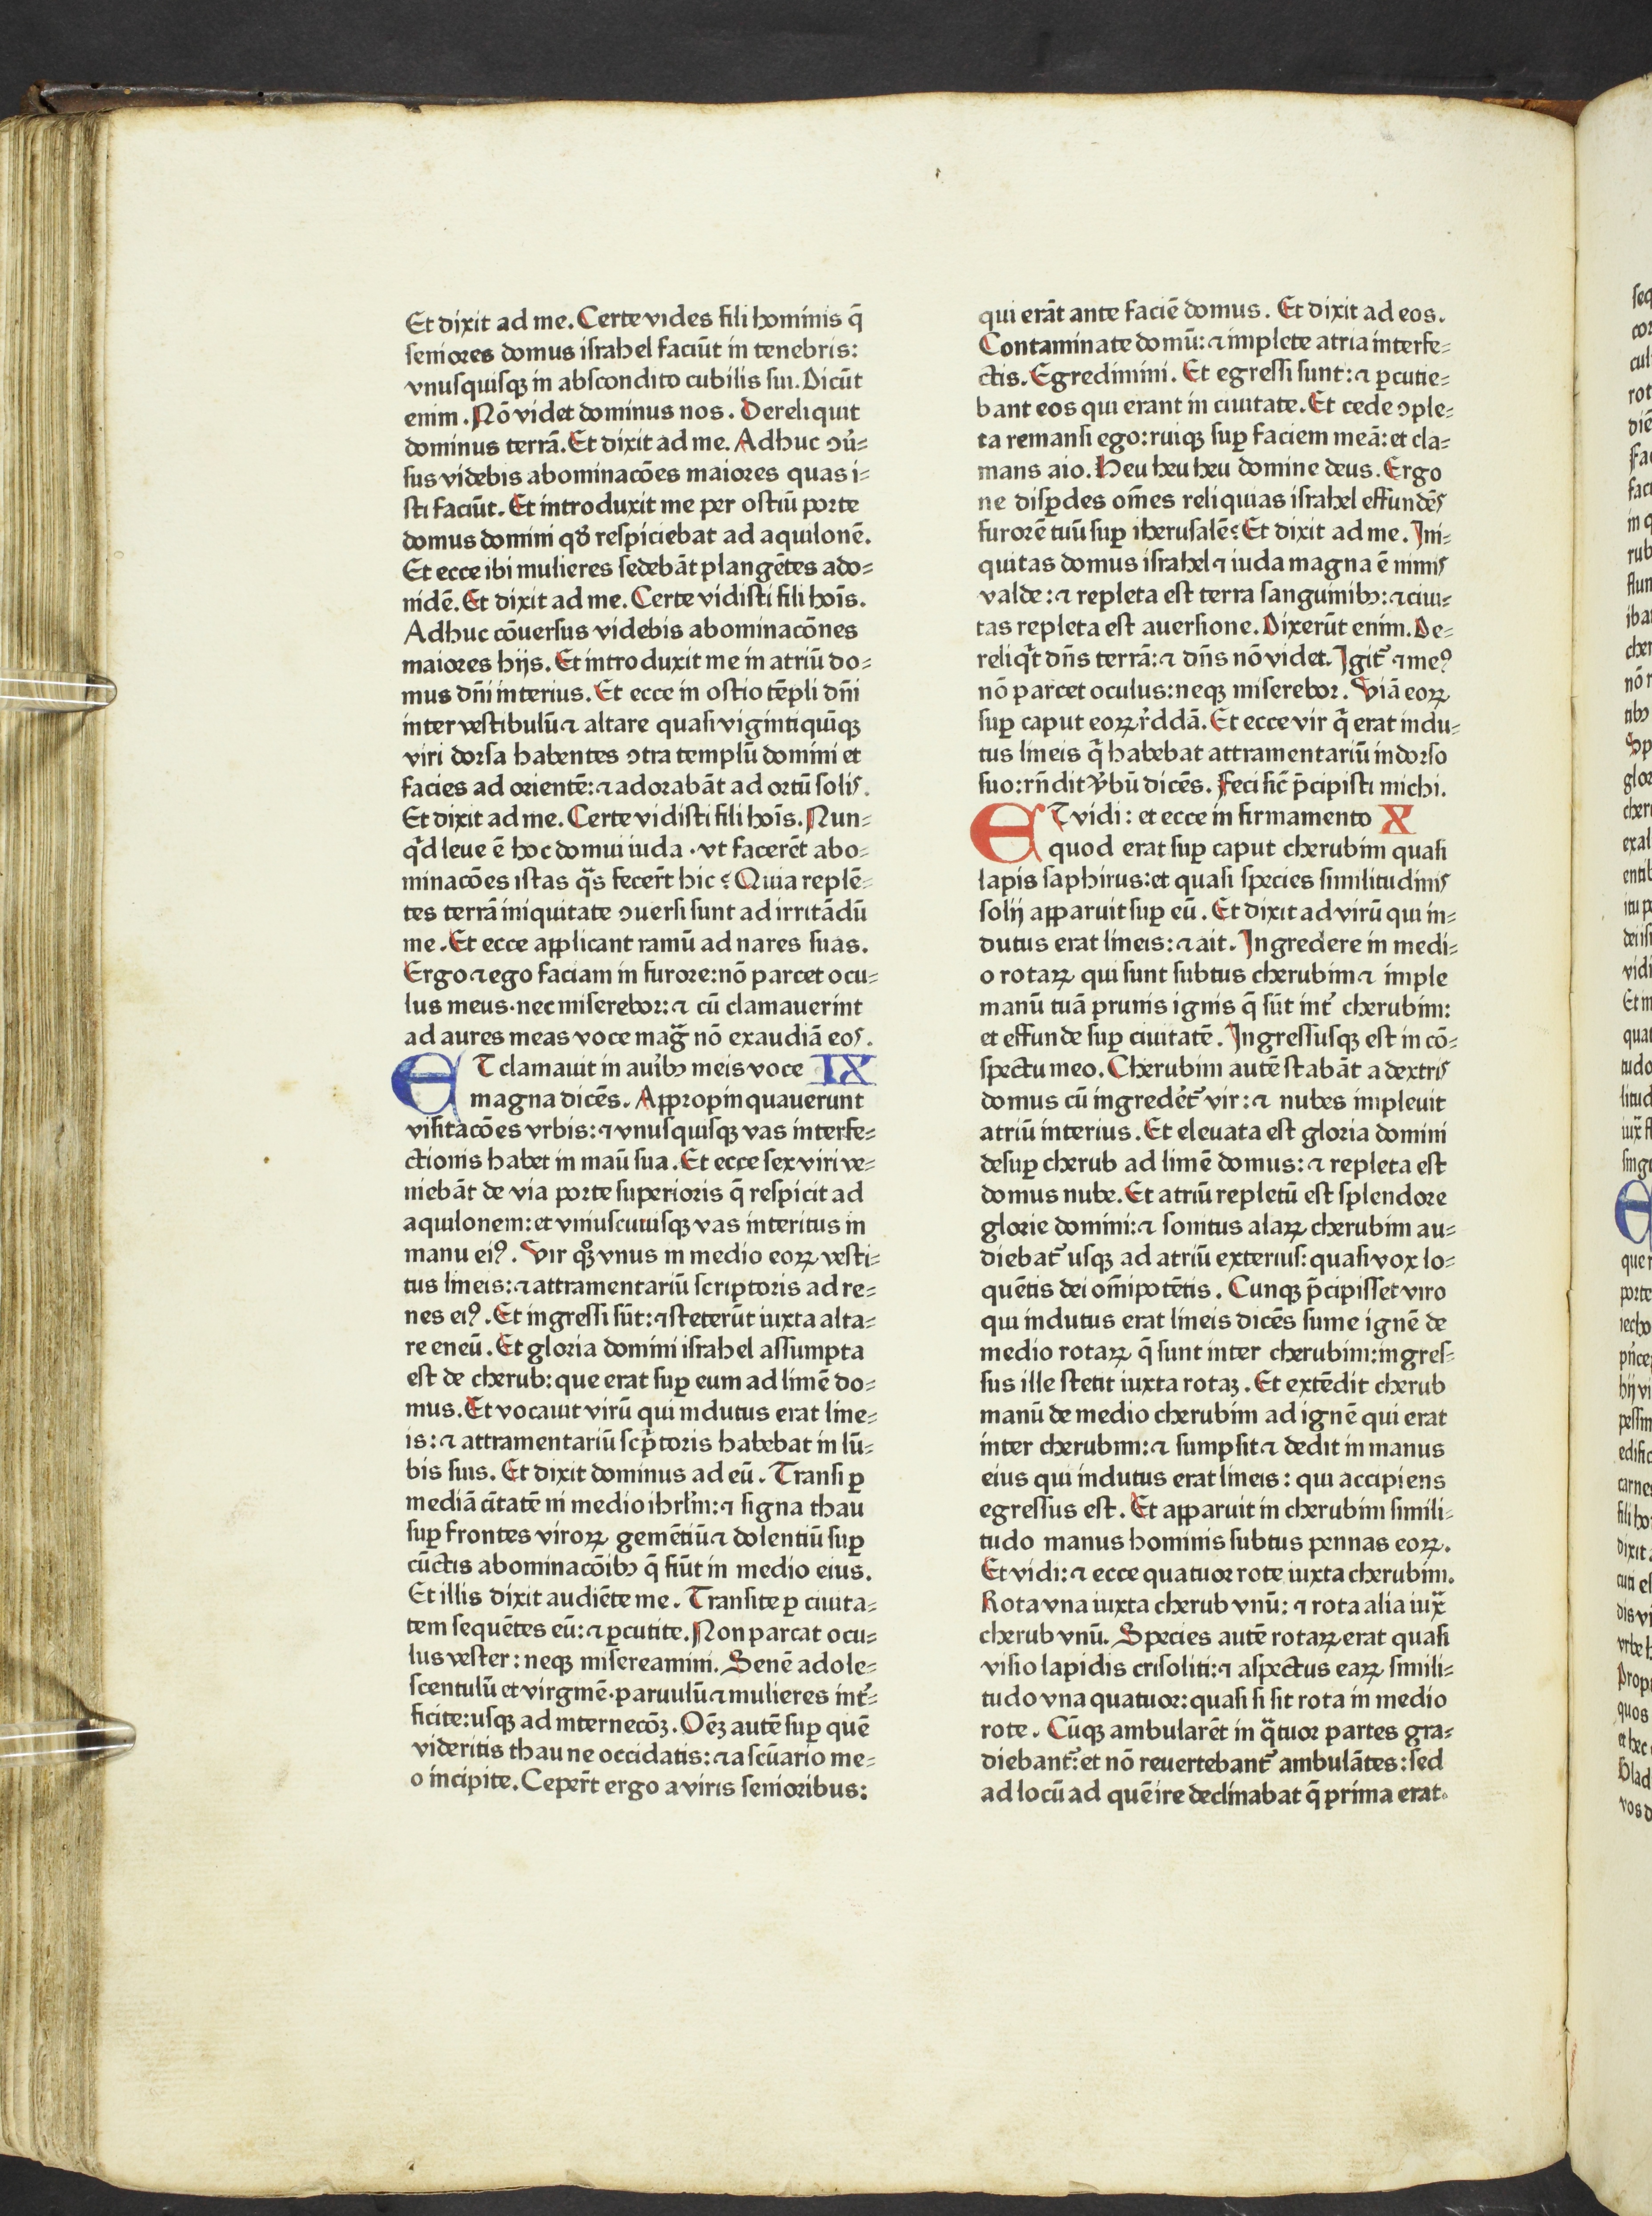 Et dixit ad me. Certe vides fili hominis q̄
seniores domus israhel faciūt in tenebris:
vnusquisqꝫ in abscondito cubilis sui. Dicūt
enim. Nō videt dominus nos. Dereliquit
dominus terrā. Et dixit ad me. Adhuc ꝯu̓⸗
sus videbis abominacōes maiores quas i⸗
sti faciūt. Et introduxit me per ostiū porte
domus domini qd̓ respiciebat ad aquilonē.
Et ecce ibi mulieres sedebāt plangētes ado⸗
nidē. Et dixit ad me. Certe vidisti fili hoīs.
Adhuc cōuersus videbis abominacōnes
maiores hijs. Et introduxit me in atriū do⸗
mus dn̄i interius. Et ecce in ostio tēpli dn̄i
inter vestibulū ⁊ altare quasi viginti quīqꝫ
viri dorsa habentes ꝯtra templū domini et
facies ad orientē: ⁊ adorabāt ad ortū solis.
Et dixit ad me. Certe vidisti fili hoīs. Nun⸗
qͥd leue ē hoc domui iuda · vt facerēt abo⸗
minacōes istas qᷓs fecer̄t hic? Quia replē⸗
tes terrā iniquitate ꝯuersi sunt ad irritādū
me. Et ecce applicant ramū ad nares suas.
Ergo ⁊ ego faciam in furore: nō parcet ocu⸗
lus meus · nec miserebor: ⁊ cū clamauerint
ad aures meas voce magᷓ nō exaudiā eos.
ET clamauit in aui̓bꝫ meis voce IX
magna dicēs. Appropinquauerunt
visitacōes vrbis: ⁊ vnusquisqꝫ vas interfe⸗
ctionis habet in maū sua. Et ecce sex viri ve⸗
niebāt de via porte superioris q̄ respicit ad
aquilonem: et vniuscuiusqꝫ vas interitus in
manu eiꝰ. Vir qꝫ̊ vnus in medio eoꝝ vesti⸗
tus lineis: ⁊ attramentariū scriptoris ad re⸗
nes eiꝰ. Et ingressi sūt: ⁊ steterūt iuxta alta⸗
re eneū. Et gloria domini israhel assumpta
est de cherub: que erat suꝑ eum ad limē do⸗
mus. Et vocauit virū qui indutus erat line⸗
is: ⁊ attramentariū scp̄toris habebat in lū⸗
bis suis. Et dixit dominus ad eū. Transi ꝑ
mediā ci̓tatē in medio ihrl̓m: ⁊ signa thau
suꝑ frontes viroꝝ gemētiū ⁊ dolentiū suꝑ
cūctis abominacōibꝫ q̄ fiūt in medio eius.
Et illis dixit audiēte me. Transite ꝑ ciuita⸗
tem sequētes eū: ⁊ ꝑcutite. Non parcat ocu⸗
lus vester: neqꝫ misereamini. Senē adole⸗
scentulū et virginē · paruulū ⁊ mulieres int̓⸗
ficite: usqꝫ ad internecōꝫ. Oēꝫ autē suꝑ quē
videritis thau ne occidatis: ⁊ a scūario me⸗
o incipite. Ceper̄t ergo a viris senioribus:
qui erāt ante faciē domus. Et dixit ad eos.
Contaminate domū: ⁊ implete atria interfe⸗
ctis. Egredimini. Et egressi sunt: ⁊ ꝑcutie⸗
bant eos qui erant in ciuitate. Et cede ꝯple⸗
ta remansi ego: ruiqꝫ suꝑ faciem meā: et cla⸗
mans aio. Heu heu heu domine deus. Ergo
ne disꝑdes om̄es reliquias israhel effundēs
furorē tuū suꝑ iherusalē? Et dixit ad me. Ini⸗
quitas domus israhel ⁊ iuda magna ē nimis
valde: ⁊ repleta est terra sanguinibꝫ: ⁊ ciui⸗
tas repleta est auersione. Dixerūt enim. De⸗
reliqͥt dn̄s terrā: ⁊ dn̄s nō videt. Igit̓ ⁊ meꝰ
nō parcet oculus: neqꝫ miserebor. Viā eoꝝ
suꝑ caput eoꝝ r̓ddā. Et ecce vir qͥ erat indu⸗
tus lineis qͥ habebat attramentariū in dorso
suo: rn̄dit v̓bū dicēs. Feci sic̄ p̄cipisti michi.
ET vidi: et ecce in firmamento X
quod erat suꝑ caput cherubim quasi
lapis saphirus: et quasi species similitudinis
solij apparuit suꝑ eū. Et dixit ad virū qui in⸗
dutus erat lineis: ⁊ ait. Ingredere in medi⸗
o rotaꝝ qui sunt subtus cherubim ⁊ imple
manū tuā prunis ignis q̄ sūt int̓ cherubim:
et effunde suꝑ ciuitatē. Ingressusqꝫ est in cō⸗
spectu meo. Cherubim autē stabāt a dextris
domus cū ingredēt̓ vir: ⁊ nubes impleuit
atriū interius. Et eleuata est gloria domini
desuꝑ cherub ad limē domus: ⁊ repleta est
domus nube. Et atriū repletū est splendore
glorie domini: ⁊ sonitus alaꝝ cherubim au⸗
diebat̓ usqꝫ ad atriū exterius: quasi vox lo⸗
quētis dei om̄ipotētis. Cunqꝫ p̄cipisset viro
qui indutus erat lineis dicēs sume ignē de
medio rotaꝝ q̄ sunt inter cherubim: ingres⸗
sus ille stetit iuxta rotaꝫ. Et extēdit cherub
manū de medio cherubim ad ignē qui erat
inter cherubim: ⁊ sumpsit ⁊ dedit in manus
eius qui indutus erat lineis: qui accipiens
egressus est. Et apparuit in cherubim simili⸗
tudo manus hominis subtus pennas eoꝝ.
Et vidi: ⁊ ecce quatuor rote iuxta cherubim.
Rota vna iuxta cherub vnū: ⁊ rota alia iuxᷓ
cherub vnū. Species autē rotaꝝ erat quasi
visio lapidis crisoliti: ⁊ aspectus eaꝝ simili⸗
tudo vna quatuor: quasi si sit rota in medio
rote. Cūqꝫ ambularēt in qᷓtuor partes gra⸗
diebant̓: et nō reuertebant̓ ambulātes: sed
ad locū ad quē ire declinabat q̄ prima erat.